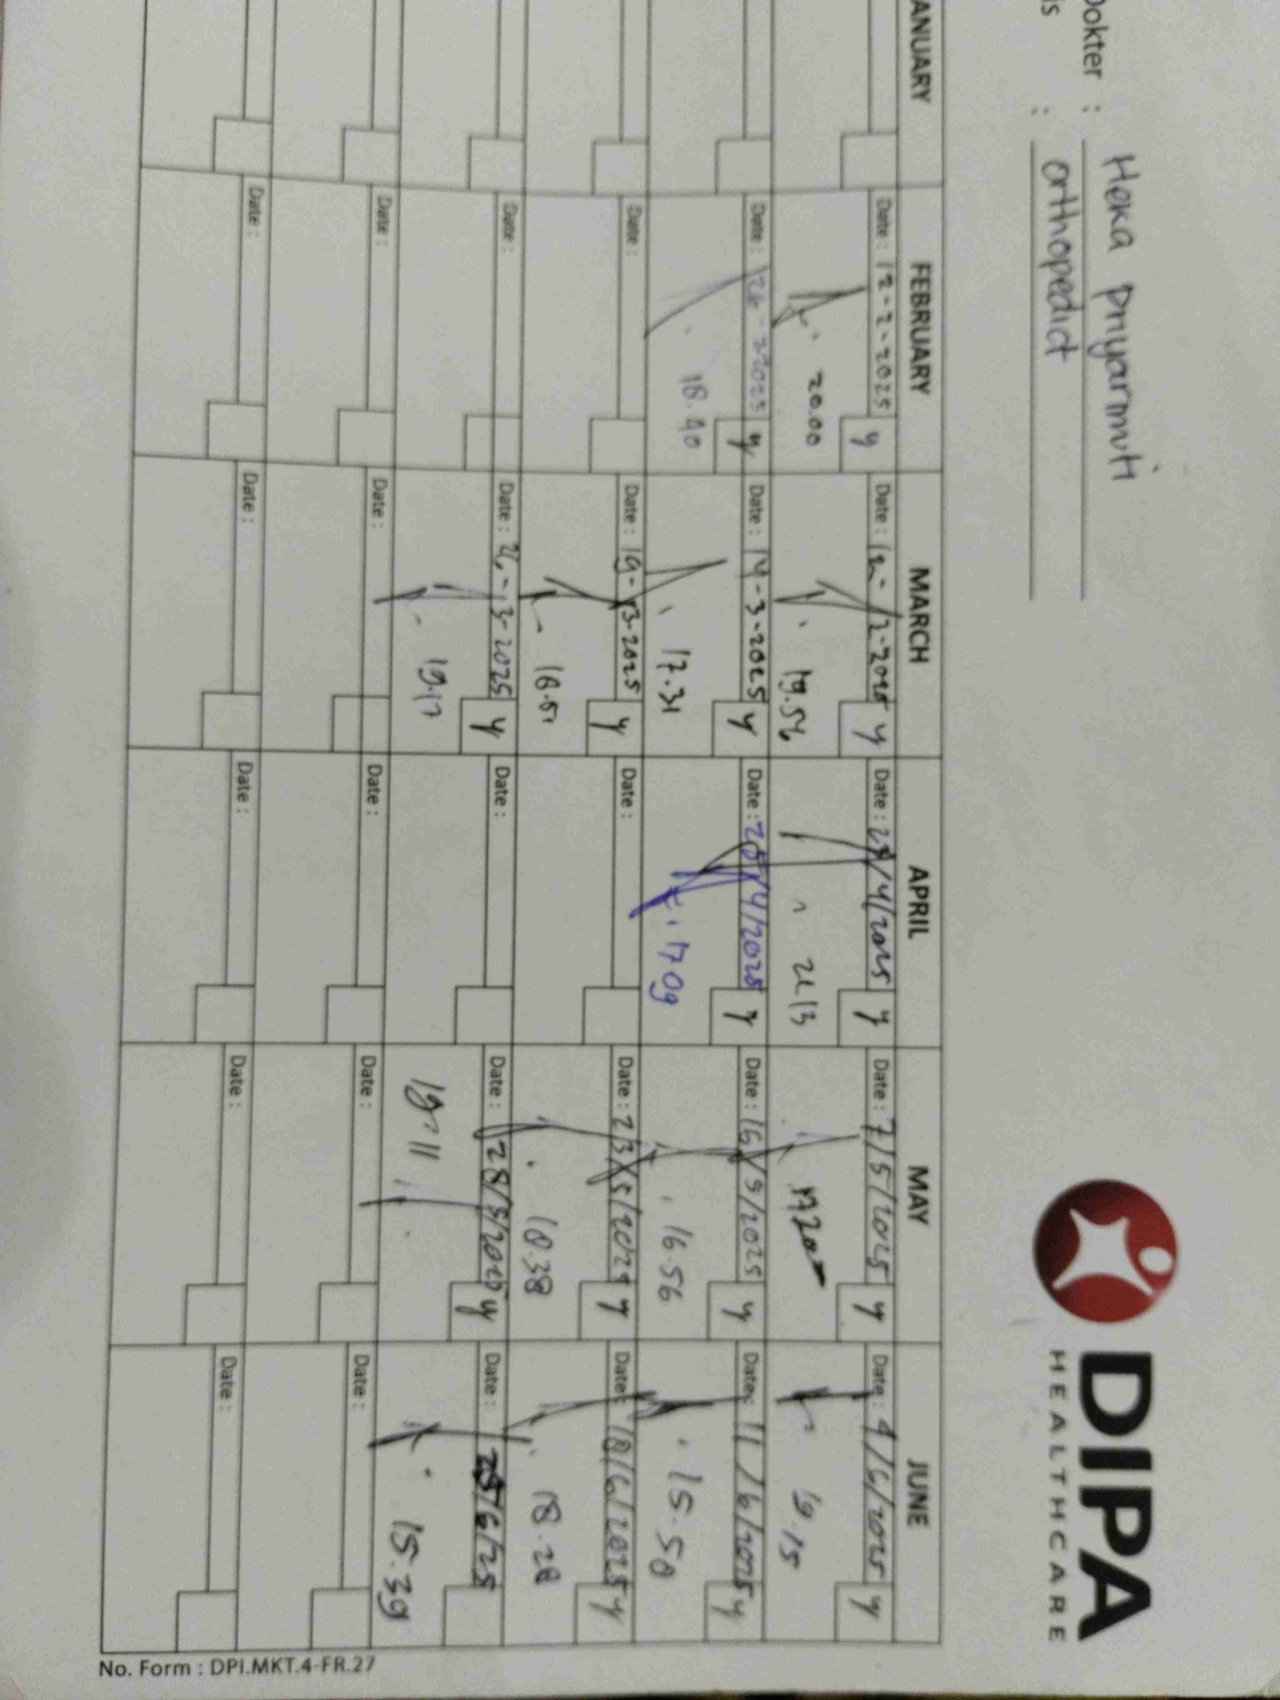 Dokter : Heka Priyarmuti
is : orthopedict
DIPA
HEALTHCARE
ANUARY FEBRUARY MARCH APRIL MAY JUNE
Date : 12-2-2025 y
20.00
Date : 26-22025 y
18.40
Date :
Date :
Date :
Date :
Date : y
19.54
Date : 14-3-2025 y
17.31
Date : 19-3-2025 y
18.51
Date : 26-3-2025 y
19.17
Date :
Date :
Date : /4/2025 y
21 13
Date : /4/2025 y
17 09
Date :
Date :
Date :
Date :
Date : 7/5/2025 y
Date : 16/5/2025 y
16.56
Date : 23/5/2025 y
18.38
Date : 28/5/2025 y
19.11
Date :
Date :
Date : 4/6/2025 y
19.15
Date : 11/6/2025 y
15.58
Date : 18/6/2025 y
18.28
Date : 25/6/25
15.39
Date :
Date :
No. Form : DPI.MKT.4-FR.27